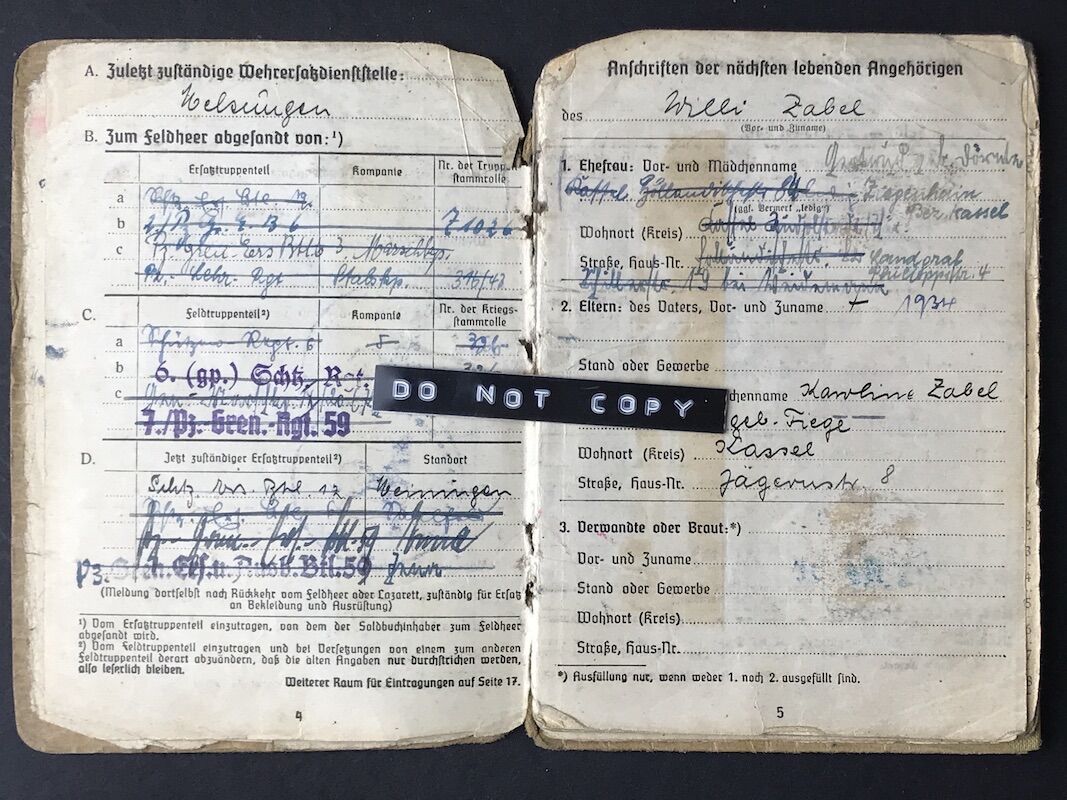 A. Zuletzt zuständige Wehrersatzdienststelle:
Melsungen
B. Zum Feldheer abgesandt von:¹)
Ersatztruppenteil Kompanie Nr. der Truppen-
stammrolle
a
b 71026
c Pz. Gren. Ers. Btl. 3. Marschkp.
Pz. Lehr. Rgt Stabskp. 316/42
C. Feldtruppenteil²) Kompanie Nr. der Kriegs-
stammrolle
a Schützen Regt. 6
b 6. (gp.) Schtz. Rgt.
c
7./Pz.-Gren.-Rgt. 59
D. Jetzt zuständiger Ersatztruppenteil²) Standort
Schtz. Ers. Btl. 12 Meiningen
Pz. Gren. Ers. u. Ausb. Btl. 59
(Meldung dortselbst nach Rückkehr vom Feldheer oder Lazarett, zuständig für Ersatz
an Bekleidung und Ausrüstung)
¹) Vom Ersatztruppenteil einzutragen, von dem der Soldbuchinhaber zum Feldheer
abgesandt wird.
²) Vom Feldtruppenteil einzutragen und bei Versetzungen von einem zum anderen
Feldtruppenteil derart abzuändern, daß die alten Angaben nur durchstrichen werden,
also leserlich bleiben.
Weiterer Raum für Eintragungen auf Seite 17.
4
Anschriften der nächsten lebenden Angehörigen
des Willi Zabel
(Vor- und Zuname)
1. Ehefrau: Vor- und Mädchenname
Kassel Ziegenhain
(ggf. Vermerk „ledig“)
Bez. Kassel
Wohnort (Kreis)
Straße, Haus-Nr. Landgraf
Philippstr. 4
Schillerstr. 19 bei
2. Eltern: des Vaters, Vor- und Zuname + 1934
Stand oder Gewerbe
DO NOT COPY
chenname Karoline Zabel
geb. Fiege
Wohnort (Kreis) Kassel
Straße, Haus-Nr. Jägerstr 8
3. Verwandte oder Braut:*)
Vor- und Zuname
Stand oder Gewerbe
Wohnort (Kreis)
Straße, Haus-Nr.
*) Ausfüllung nur, wenn weder 1. noch 2. ausgefüllt sind.
5